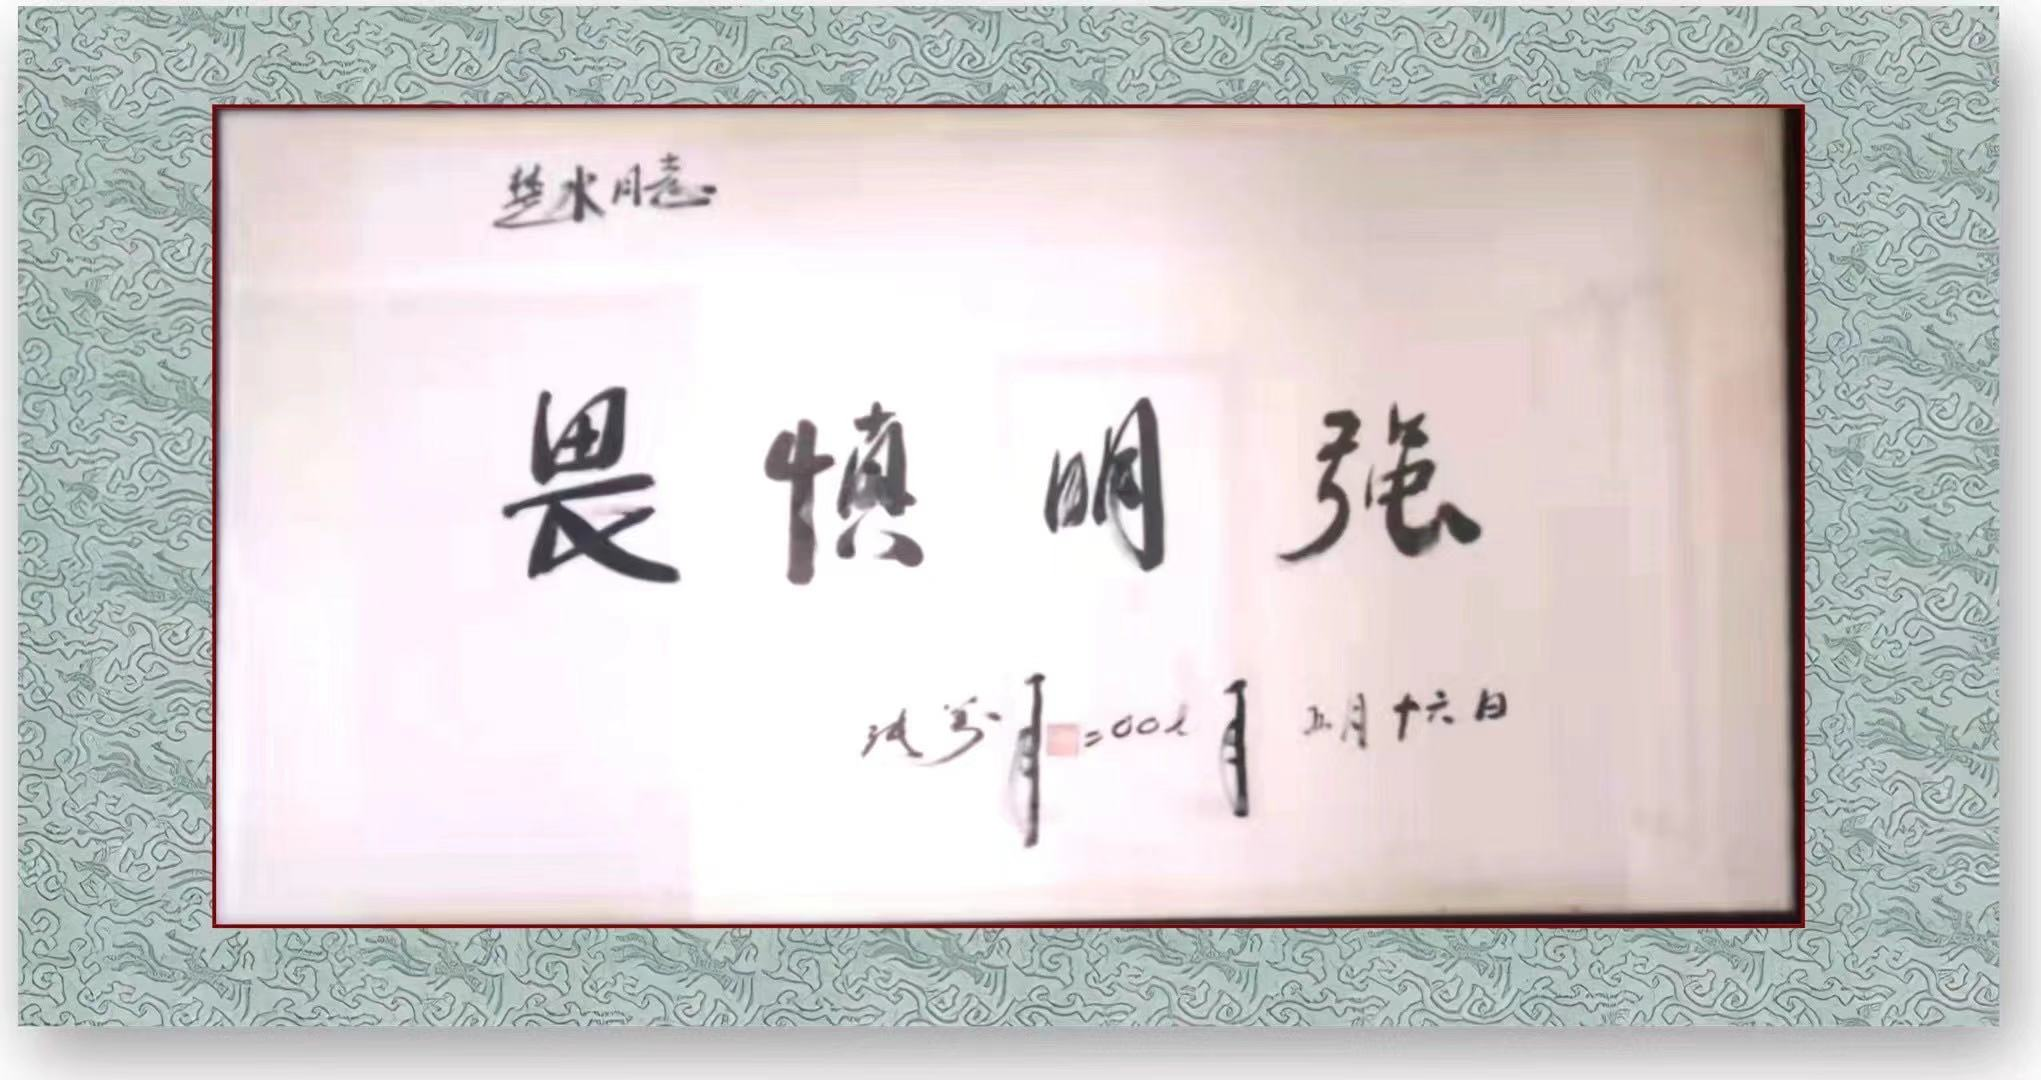 楚水同志
畏慎明强
张万年 二〇〇一年 五月十六日